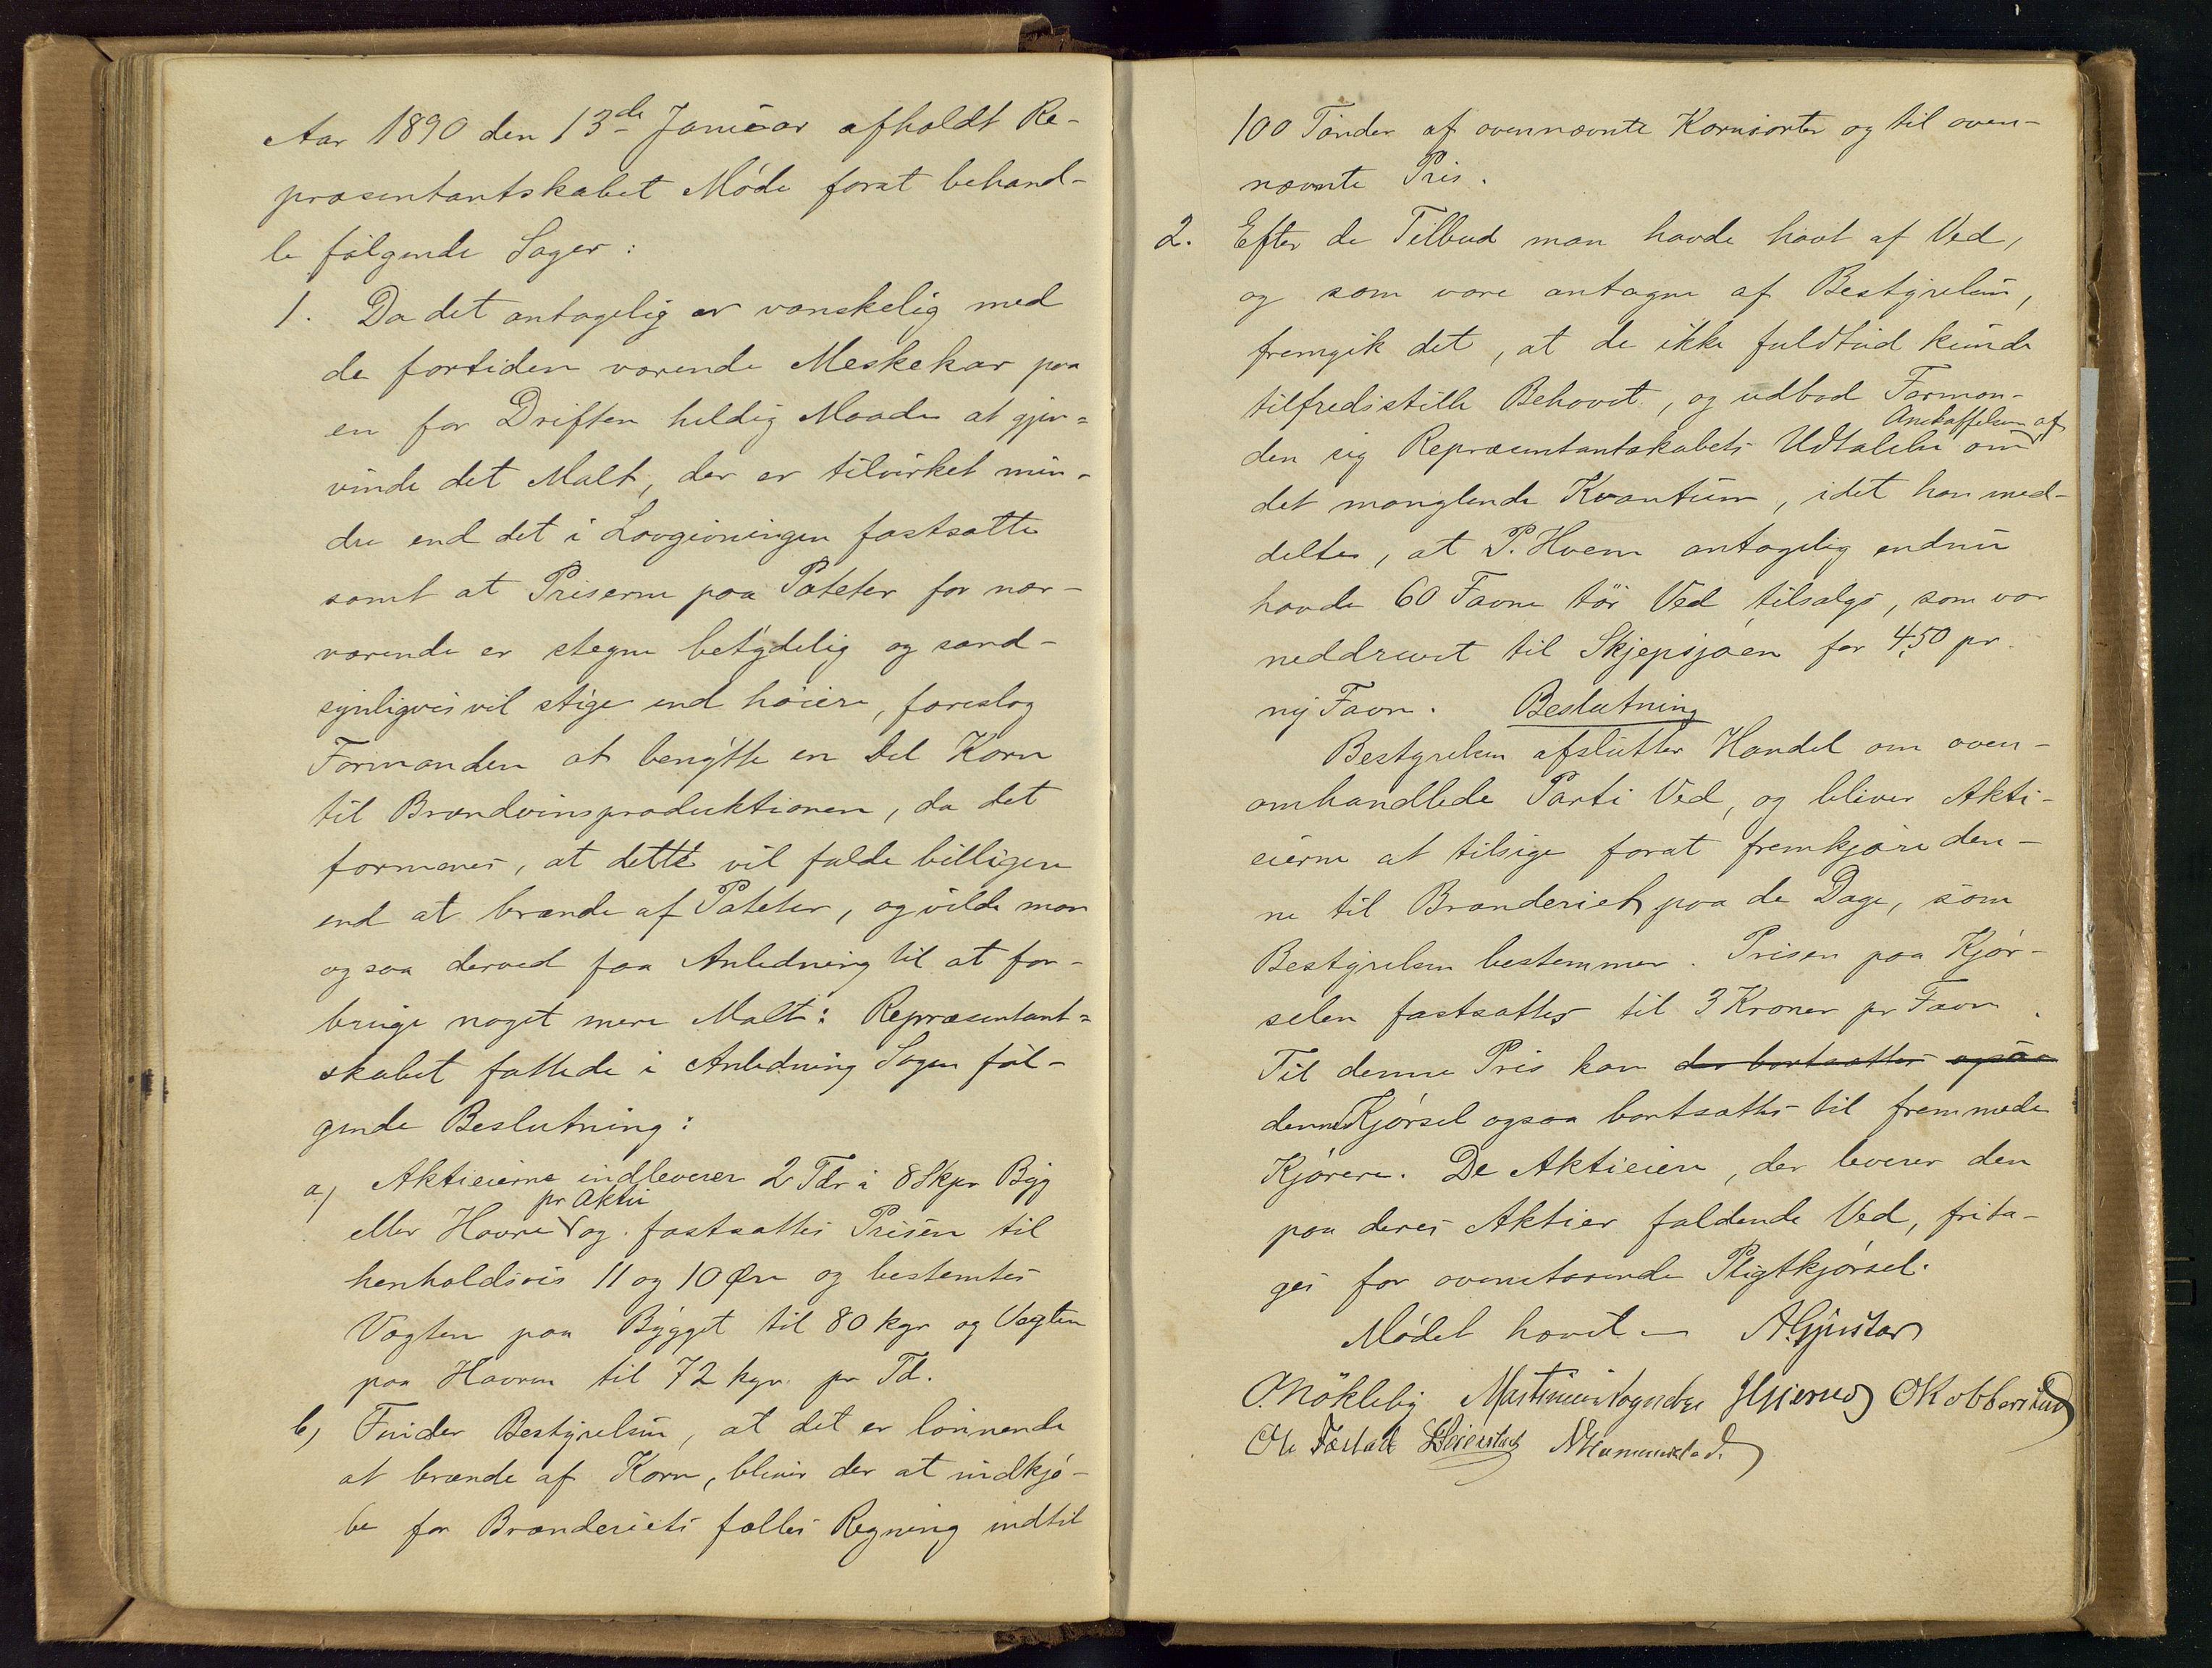 Aar 1890 den 13de Januar afholdt Re-
præsentantskabet Møde forat behand-
le følgende Sager:
1. Da det antagelig er vanskelig med
de fortiden værende Meskekar paa
en for Driften heldig Maade at gjen-
vinde det Malt, der er tilvirket min-
dre end det i Lovgivningen fastsatte
samt at Priserne paa Poteter for nær-
værende er stegne betydelig og sand-
synligvis vil stige end høiere, foreslog
Formanden at benytte en Del Korn
til Brændvinsproduktionen, da det
formenes, at dette vil falde billigere
end at brænde af Poteter, og vilde man
ogsaa derved faa Anledning til at for-
bruge noget mere Malt: Repræsentant-
skabet fattede i Anledning Sagen føl-
gende Beslutning:
a) Aktieierne indleverer 2 Tdr à 8 Skpr Byg
pr Aktie
eller Havre og fastsattes Prisen til
henholdsvis 11 og 10 Øre og bestemtes
Vægten paa Bygget til 80 kgr og Vægten
paa Havren til 72 kgr pr Td.
b) Finder Bestyrelsen, at det er lønnende
at brænde af Korn, bliver der at indkjø-
be for Brænderiets fælles Regning indtil
100 Tønder af ovennævnte Kornsorter og til oven-
nævnte Pris.
2. Efter de Tilbud man havde havt af Ved,
og som vare antagne af Bestyrelsen,
fremgik det, at de ikke fuldtud kunde
tilfredsstille Behovet, og udbad Forman-
Anskaffelsen af
den sig Repræsentantskabets Udtalelse om
det manglende Kvantum, idet han med-
deltes, at P. Hvem antagelig endnu
havde 60 Favne tør Ved tilsalgs, som var
neddrevet til Skjepsjøen for 4,50 pr.
ny Favn. Beslutning
Bestyrelsen afslutter Handel om oven-
omhandlede Parti Ved, og bliver Akti-
eierne at tilsige forat fremkjøre den-
ne til Brænderiet paa de Dage, som
Bestyrelsen bestemmer. Prisen paa Kjør-
selen fastsattes til 3 Kroner pr Favn.
Til denne Pris kan der bortsættes ogsaa
denne Kjørsel ogsaa bortsættes til fremmede
Kjørere. De Aktieiere, der leverer den
paa deres Aktier faldende Ved, frita-
ges for ovenstaaende Pligtkjørsel.
Mødet hævet A. Gjestar
O. Nøkleby O Kobberstad
Ole Fæstad